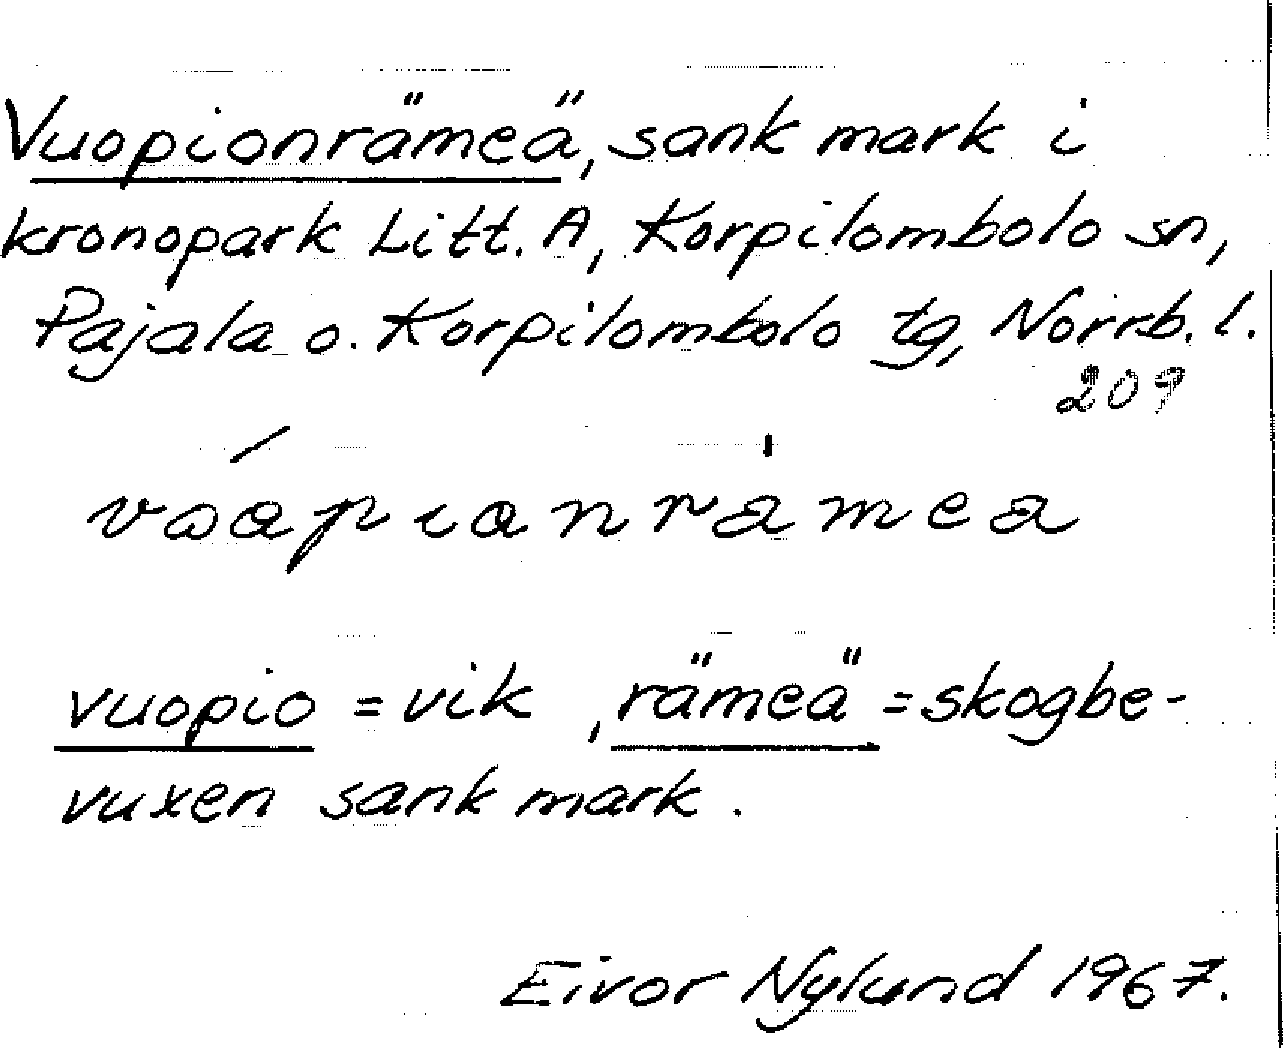 Vuopionrämeä, sank mark i
kronopark Litt. A, Korpilombolo sn,
Pajala o. Korpilombolo tg, Norrb. l.
209
vuopio = vik, rämeä = skogbe-
vuxen sank mark.
Eivor Nylund 1967.